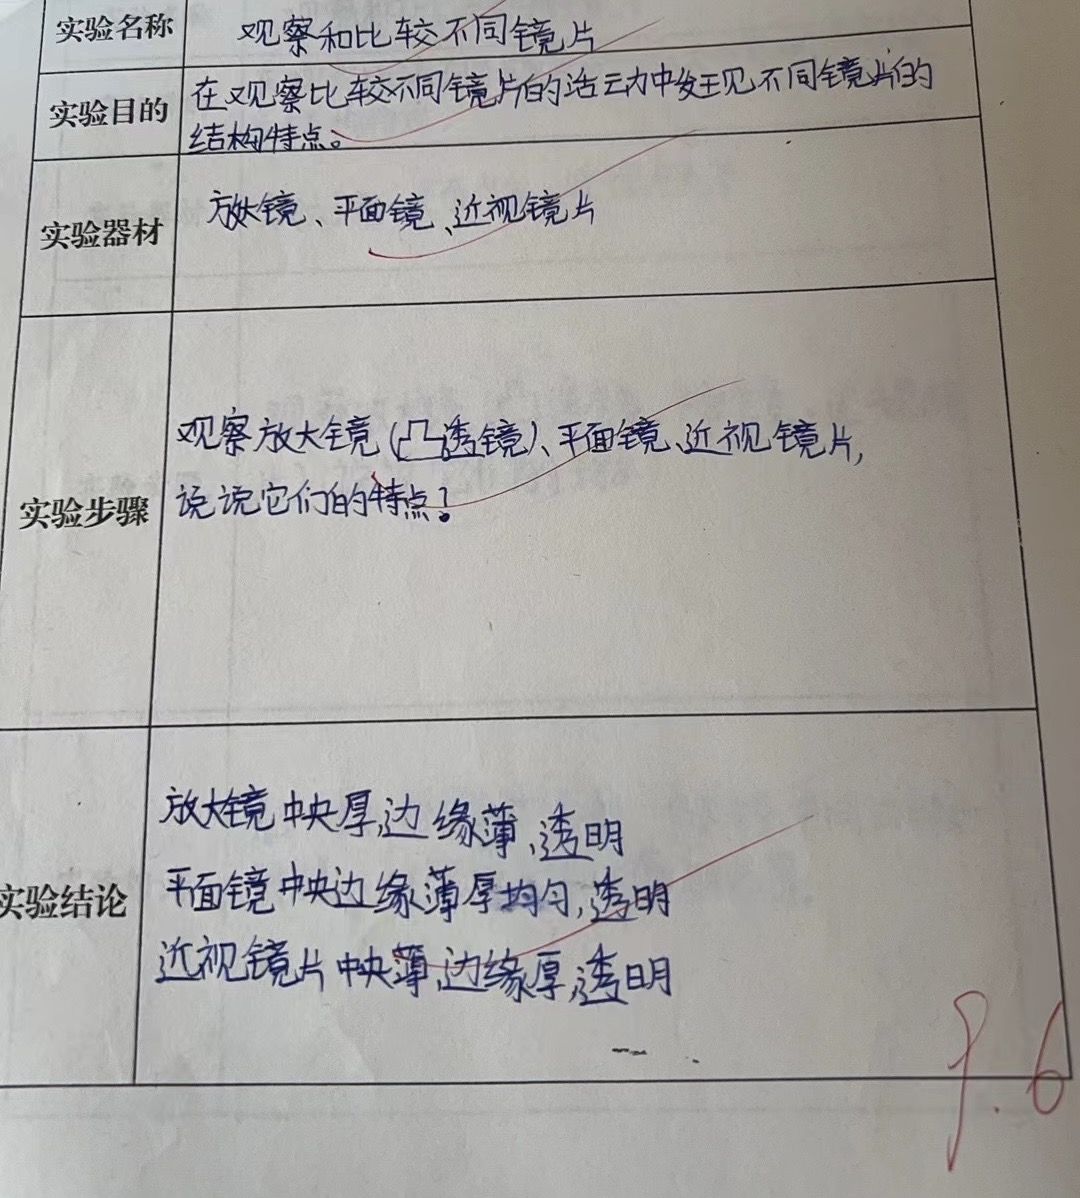 实验名称
观察和比较不同镜片
实验目的
在观察比较不同镜片的活动中发现不同镜片的
结构特点。
实验器材
放大镜、平面镜、近视镜片
实验步骤
观察放大镜(凸透镜)、平面镜、近视镜片,
说说它们的特点!
实验结论
放大镜中央厚,边缘薄,透明
平面镜中央边缘薄厚均匀,透明
近视镜片中央薄,边缘厚,透明
9.6